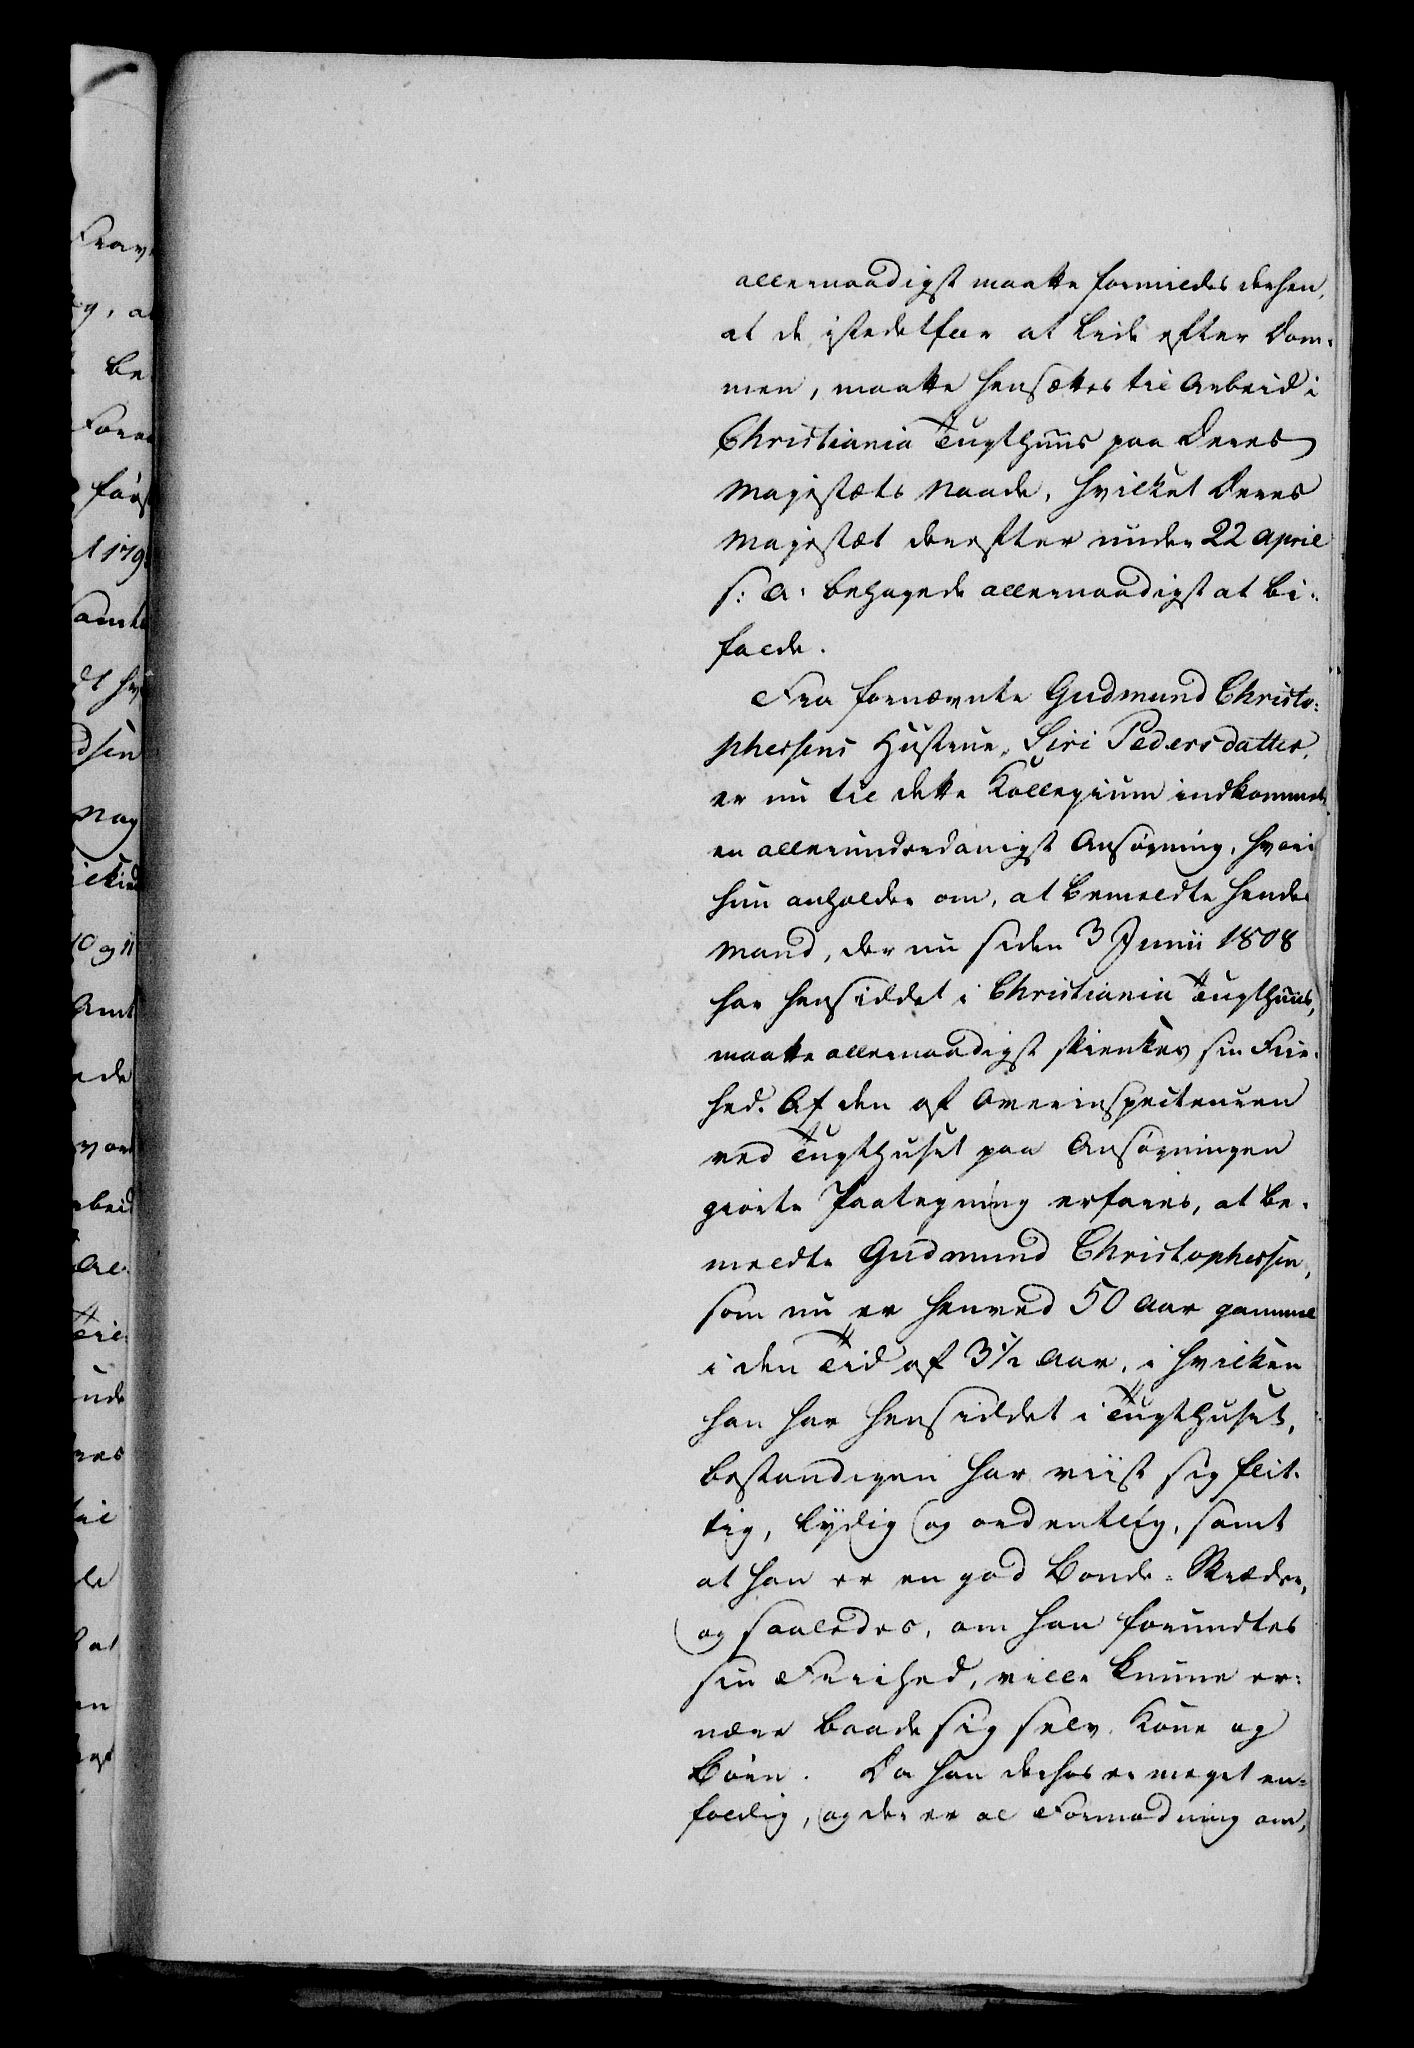 allernaadigst maatte formildes derhen,
at de istedetfor at lide efter Dom-
men, maatte hensættes til Arbeid i
Christiania Tugthuus paa Deres
Majestæts Naade, hvilket Deres
Majestæt derefter under 22 April
s: A: behagede allernaadigst at bi-
falde.
Fra fornævnte Gudmund Christo-
phersens Hustrue, Siri Pedersdatter,
er nu til dette Kollegium indkommet
en allerunderdanigst Ansøgning, hvori
hun anholder om, at bemeldte hendes
Mand, der nu siden 3 Junii 1808
har hensiddet i Christiania Tugthuus,
maatte allernaadigst skienkes sin Frie-
hed. Af den af Overinspecteuren
ved Tugthuset paa Ansøgningen
giorte Paategning erfares, at be-
meldte Gudmund Christophersen,
som nu er henved 50 Aar gammel
i den Tid af 3½ Aar, i hvilken
han har hensiddet i Tugthuset,
bestandigen har viist sig flit-
tig, lydig og ordentlig, samt
at han er en god Bonde-Skræder,
og saaledes, om han forundtes
sin Friehed, ville kunne er-
nære baade sig selv, Kone og
Børn. Da han derhos er meget en-
foldig, og der er al Formodning om,